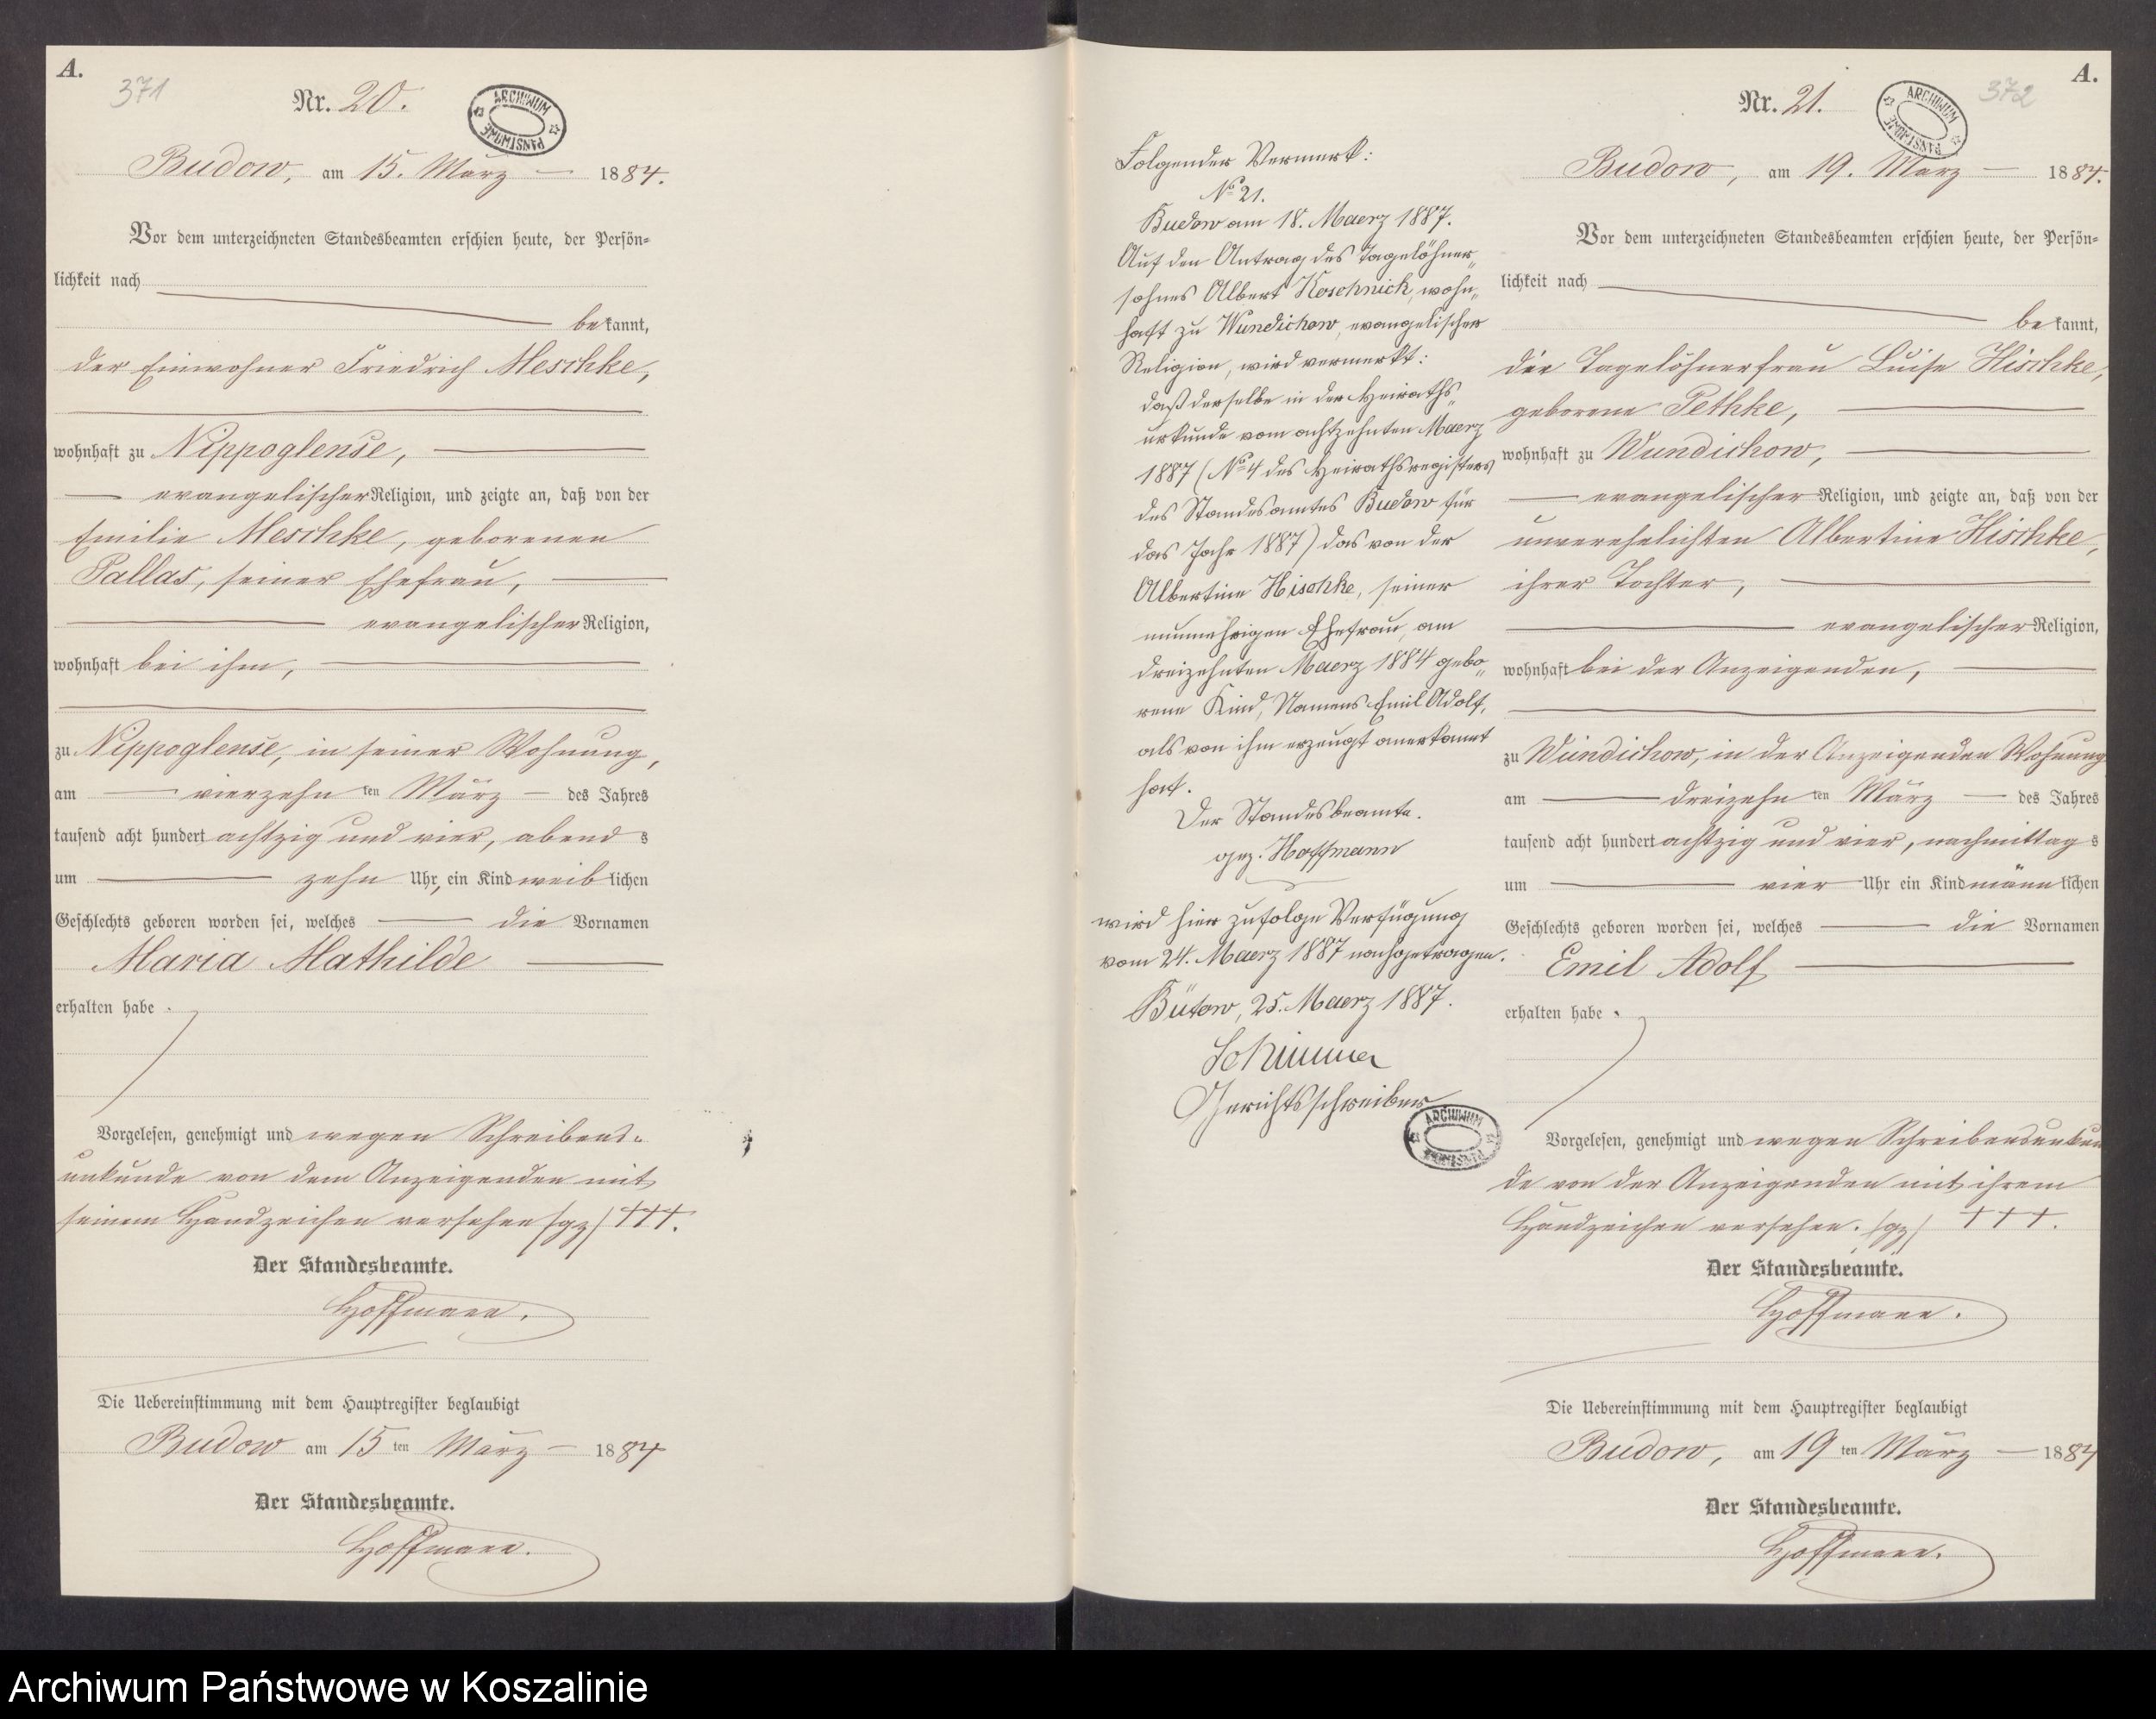 A.
371
Nr. 20.
ARCHIWUM PAŃSTWOWE
Budow, am 15. März 1884.
Vor dem unterzeichneten Standesbeamten erschien heute, der Persön=
lichkeit nach
bekannt,
der Einwohner Friedrich Meschke,
wohnhaft zu Nippoglense,
evangelischer Religion, und zeigte an, daß von der
Emilie Meschke, geborenen
Pallas, seiner Ehefrau,
evangelischer Religion,
wohnhaft bei ihm,
zu Nippoglense, in seiner Wohnung,
am vierzehn ten März des Jahres
tausend acht hundert achtzig und vier, abend s
um zehn Uhr, ein Kind weiblichen
Geschlechts geboren worden sei, welches die Vornamen
Maria Mathilde
erhalten habe.
Vorgelesen, genehmigt und wegen Schreibens-
unkunde von dem Anzeigenden mit
seinem Handzeichen versehen /gz/ +++.
Der Standesbeamte.
Hoffmann.
Die Uebereinstimmung mit dem Hauptregister beglaubigt
Budow am 15 ten März 1884
Der Standesbeamte.
Hoffmann.
Folgender Vermerk:
No 21.
Budow am 18. Maerz 1887.
Auf den Antrag des Tagelöhner„
sohnes Albert Koschnick, wohn„
haft zu Wundichow, evangelischer
Religion, wird vermerkt:
daß derselbe in der Heiraths„
urkunde vom achtzehnten Maerz
1887 (No 4 des Heirathsregisters
des Standesamtes Budow für
das Jahr 1887) das von der
Albertine Hischke, seiner
nunmehrigen Ehefrau, am
dreizehnten Maerz 1884 gebo„
rene Kind, Namens Emil Adolf,
als von ihm erzeugt anerkannt
hat.
Der Standesbeamte.
gez. Hoffmann
wird hier zufolge Verfügung
vom 24. Maerz 1887 nachgetragen.
Bütow, 25. Maerz 1887.
Gerichtsschreiber
ARCHIWUM PAŃSTWOWE
A.
372
Nr. 21.
ARCHIWUM PAŃSTWOWE
Budow, am 19. März 1884.
Vor dem unterzeichneten Standesbeamten erschien heute, der Persön=
lichkeit nach
bekannt,
die Tagelöhnerfrau Luise Hischke,
geborene Pethke,
wohnhaft zu Wundichow,
evangelischer Religion, und zeigte an, daß von der
unverehelichten Albertine Hischke,
ihrer Tochter,
evangelischer Religion,
wohnhaft bei der Anzeigenden,
zu Wundichow, in der Anzeigenden Wohnung
am dreizehn ten März des Jahres
tausend acht hundert achtzig und vier, nachmittag s
um vier Uhr ein Kind männlichen
Geschlechts geboren worden sei, welches die Vornamen
Emil Adolf
erhalten habe.
Vorgelesen, genehmigt und wegen Schreibensunkun
de von der Anzeigenden mit ihrem
Handzeichen versehen. /gz/ +++.
Der Standesbeamte.
Hoffmann.
Die Uebereinstimmung mit dem Hauptregister beglaubigt
Budow, am 19 ten März 1884
Der Standesbeamte.
Hoffmann.
Archiwum Państwowe w Koszalinie